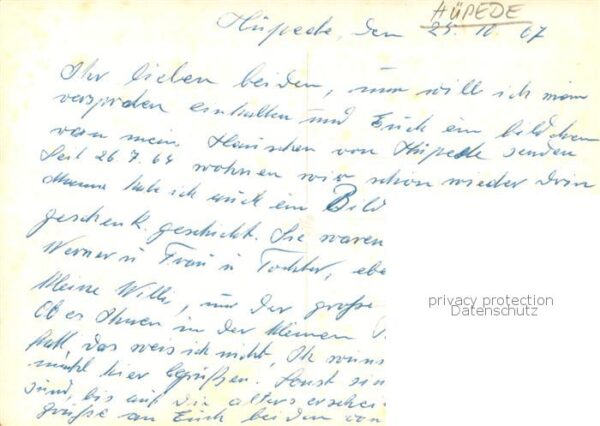 HÜPEDE
Hüpede, den 25. 10. 67
Ihr lieben beiden, nun will ich mein
verspräden einhalten und Euch ein bildchen
von mein Häuschen von Hüpede senden
Seit 26 7. 64 wohnen wir schon wieder drin
Mamma hab ich auch ein Bild
geschenk. geschickt. Sie waren
Werner u Frau u Tochter, ebe
kleine Willi, und der große
Ob es Ihnen in der kleinen
hatt, das weis ich nicht, Ich wüns
mahl hier begrüßen. Sonst sin
sund, bis auf die alters erschei
grüße an Euch beiden von
privacy protection
Datenschutz